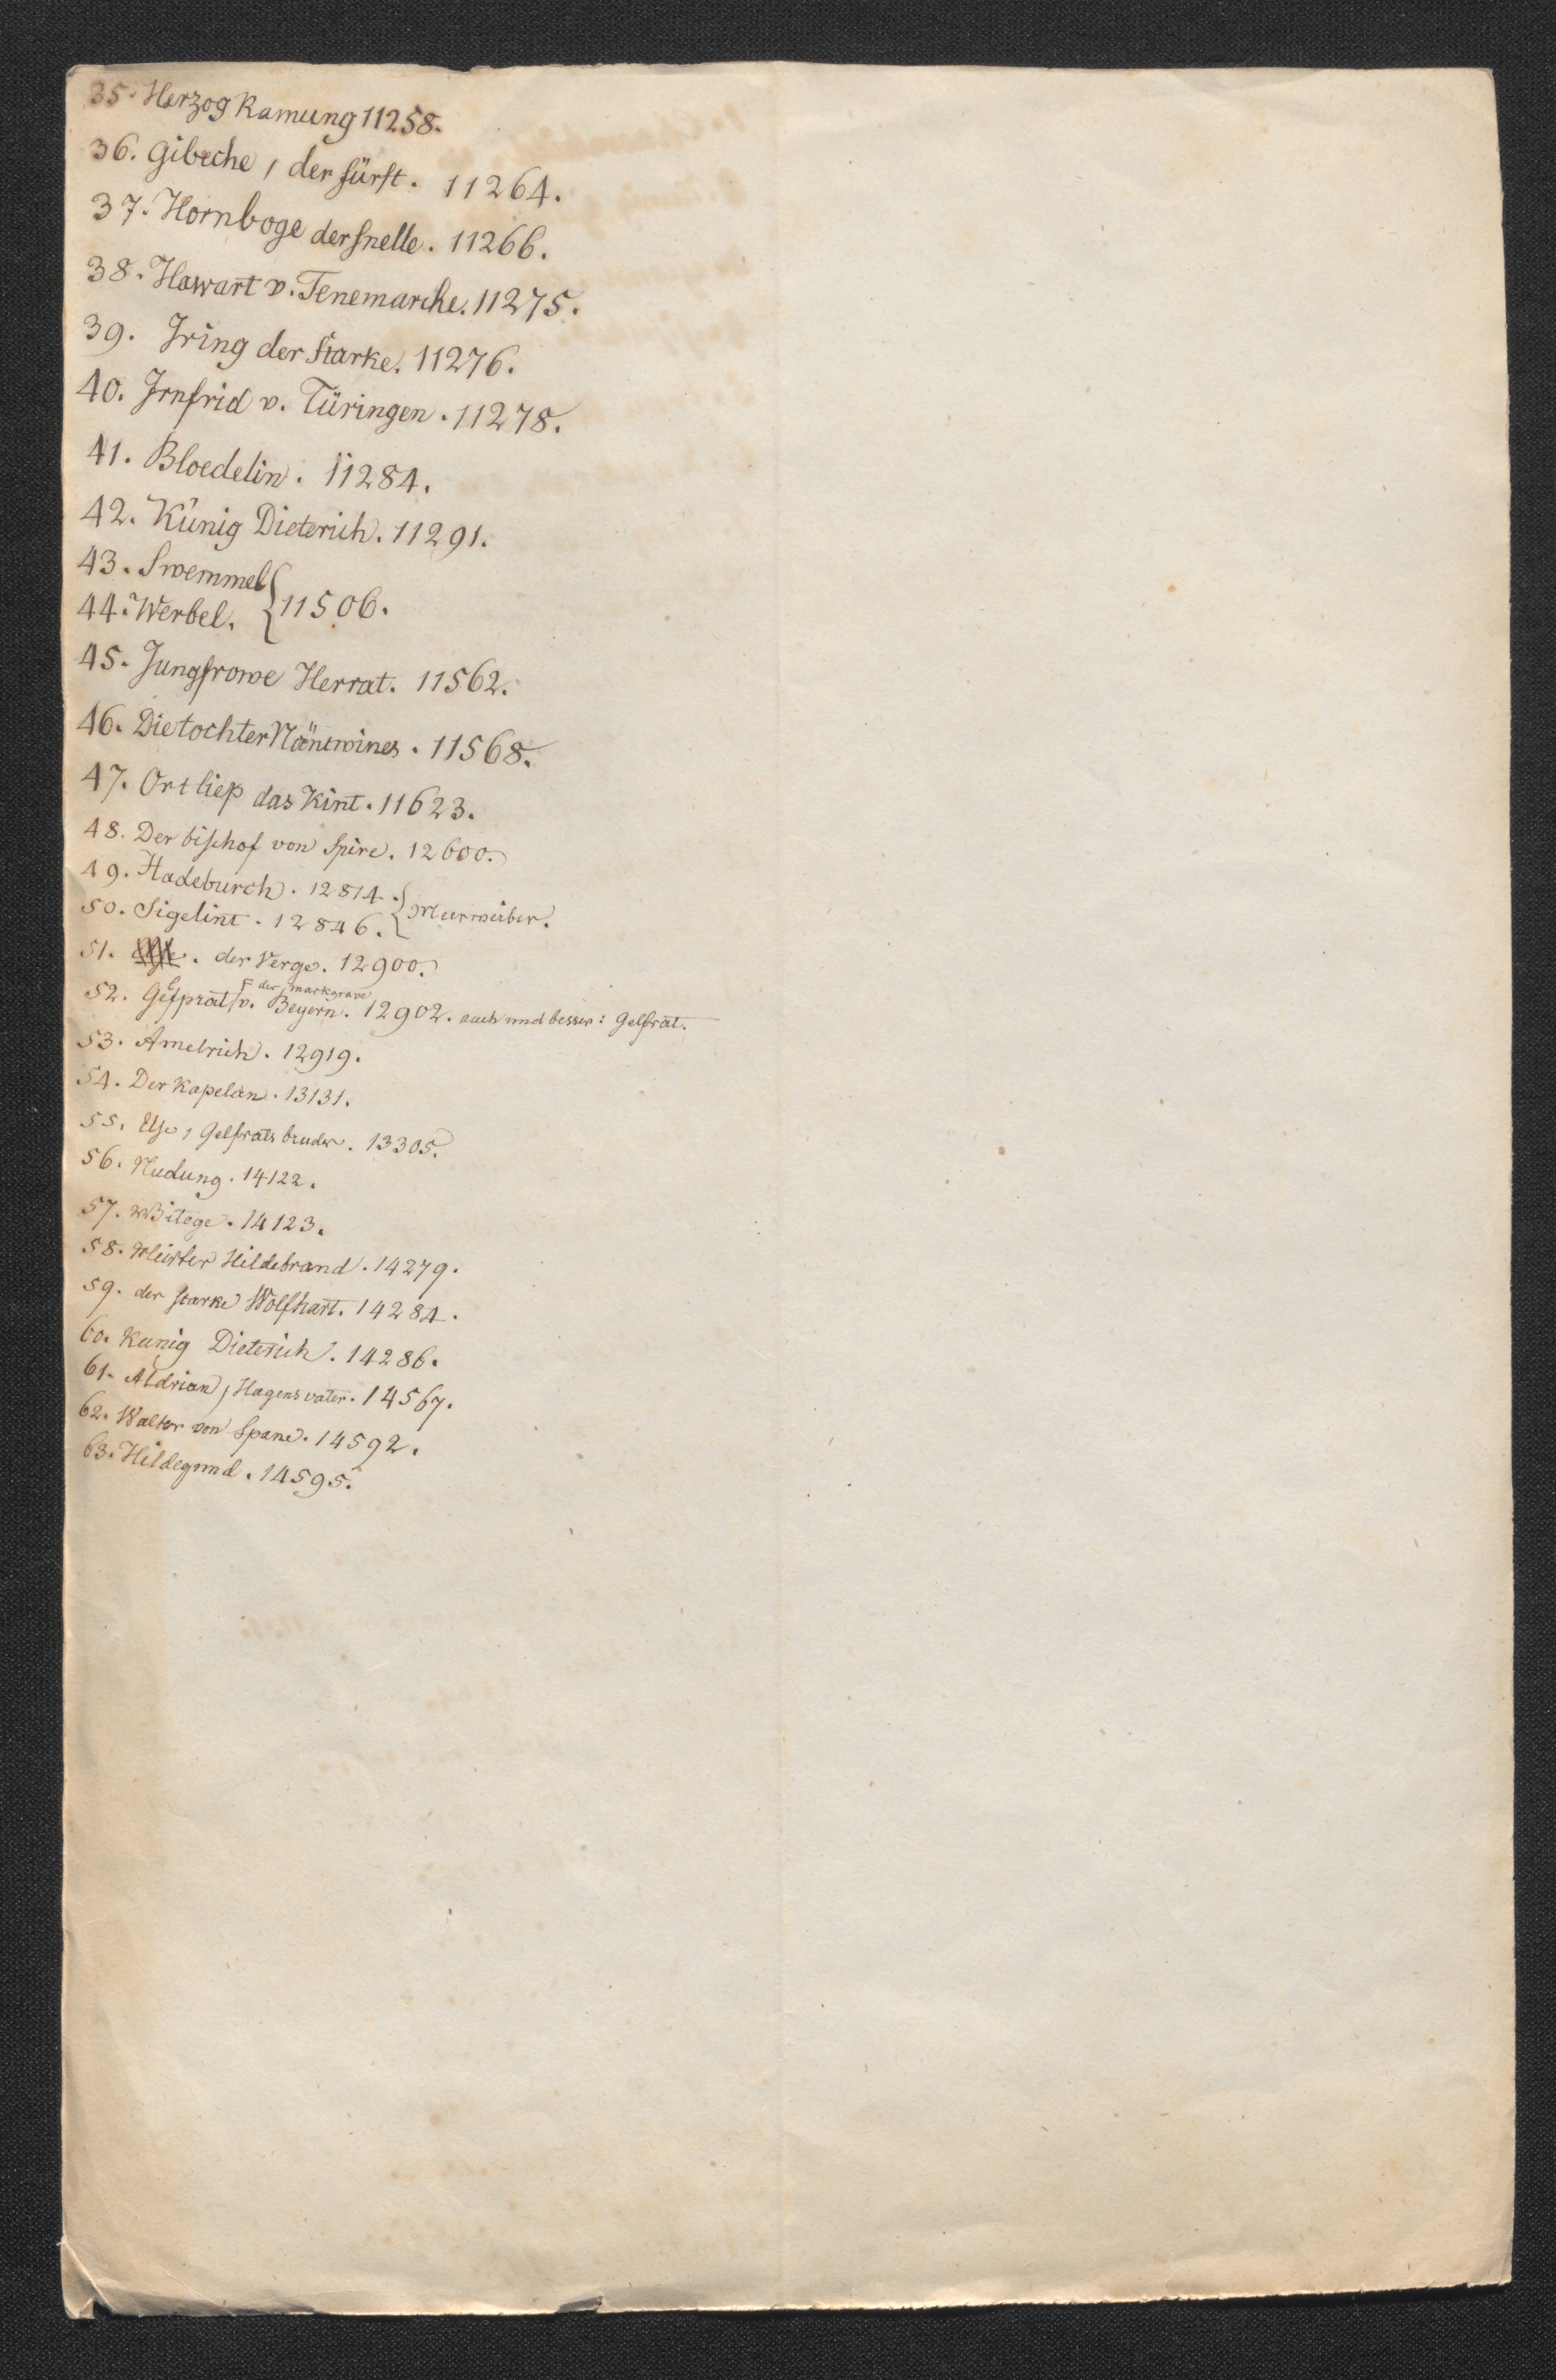 35. Herzog Ramung 11258.
36. Gibeche, der fürst. 11264.
37. Hornboge der snelle. 11266.
38. Hawart v. Tenemarche. 11275.
39. Iring der starke. 11276.
40. Irnfrid v. Türingen. 11278.
41. Bloedelin. 11284.
42. Künig Dieterich. 11291.
43. Swemmel
44. Werbel. } 11506.
45. Jungfrowe Herrat. 11562.
46. Die tochter Näntwines. 11568.
47. Ortliep das Kint. 11623.
48. Der bischof von Spire. 12600.
49. Hadeburch. 12814.
50. Sigelint. 12846. } Meerweiber.
51. der Verge. 12900.
52. Gelfprat, der markgrave v. Beyern. 12902. auch und besser: Gelfrat.
53. Amelrich. 12919.
54. Der Kapelan. 13131.
55. Else, Gelfrats bruder. 13305.
56. Nudung. 14122.
57. Witege. 14123.
58. Meister Hildebrand. 14279.
59. der starke Wolfhart. 14284.
60. Kunig Dieterich. 14286.
61. Aldrian, Hagens vater. 14567.
62. Walter von Spane. 14592.
63. Hildegund. 14595.